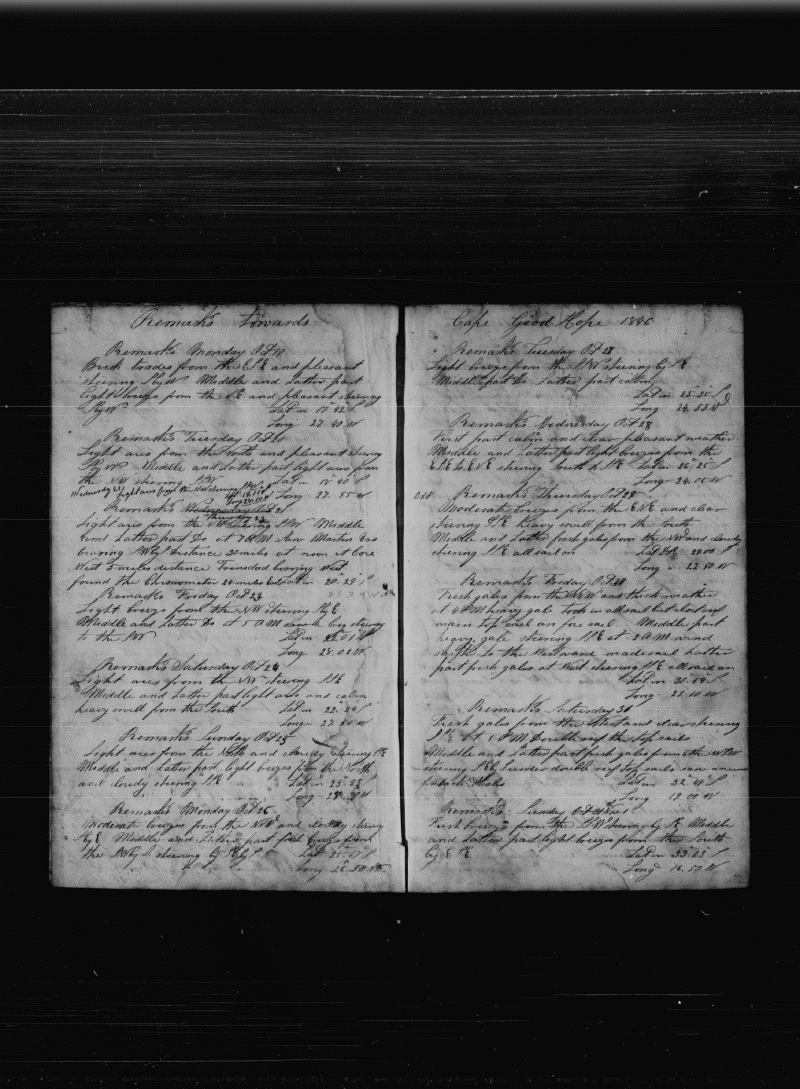 Remarks towards
Remarks Monday Oct 19
Brisk trades from the ESE and pleasant
steering SbyW Middle and Latter part
light breeze from the SE and pleasant steering
SbyW Lat in 17.42 S
Long 27.40 W
Remarks Tuesday Oct 20
Light aires from the North and pleasant steering
SbyW Middle and Latter part light aires from
the NW steering SW Lat in 18.40 S
Wednesday 21 light aires from the NW steering SW
Long 27.55 W
Remarks Wednesday Oct 21
Thursday 22
Light aires from the NW steering SW Middle
and Latter part Do at 7 AM saw Martin Vas
bearing distance 20 miles at noon it bore
West 5 miles distance Trinedad bearing West
found the Chronometer 20 miles Lat in 20.28 S
Remarks Friday Oct 23
Light breeze from the NW steering SbyE
Middle and Latter Do at 5 AM saw a brig steering
to the SW Lat in 22.01 S
Long 28.00 W
Remarks Saturday Oct 24
Light aires from the NW steering SSE
Middle and Latter part light aires and calm
heavy swell from the South Lat in 22.24 S
Long 27.00 W
Remarks Sunday Oct 25
Light aires from the North and cloudy steering SE
Middle and Latter part light breezes from the North
and cloudy steering SSE Lat in 23.23
Long W
Remarks Monday Oct 26
Moderate breezes from the NW and cloudy steering
SbyE Middle and Latter part fresh breezes from
the steering Lat 25.17 S
Long 26.30 W
Cape Good Hope 1846
Remarks Tuesday Oct 27
Light breezes from the SW steering by SE
Middle part Do Latter part calm
Lat in 25.35 S
Long 24.53 W
Remarks Wednesday Oct 28
First part calm and clear pleasant weather
Middle and Latter part light breezes from the
ESE to ENE steering South to SSE Lat in 26.25 S
Long 24.05 W
Remarks Thursday Oct 29
Moderate breezes from the ENE and clear
steering SSE heavy swell from the South
Middle and Latter fresh gales from the NW and cloudy
steering SSE all sail on Lat DR 28.00 S
Long 22.50 W
Remarks Friday Oct 30
Fresh gales from the NNW and thick weather
at 4 PM heavy gale Took in all sail but close reef
main top sail an fore sail Middle part
heavy gale steering SSE at 2 AM wind
shifts to the Westward made sail Latter
part fresh gales at West steering SSE all sail on
Lat in 30.54 S
Long 21.10 W
Remarks Saturday 30
Fresh gales from the West and clear steering
SSE at 1 PM Double reef the top sails
Middle and Latter part fresh gales from the WSW
steering SSE under double reef top sails saw
Lat in 32.41 S
Long 19.00 W
Remarks Sunday Oct 31
Fresh breezes from the SW steering by SE Middle
and Latter part light breezes from the South
by E SE Lat in 33.13 S
Long 16.50 W